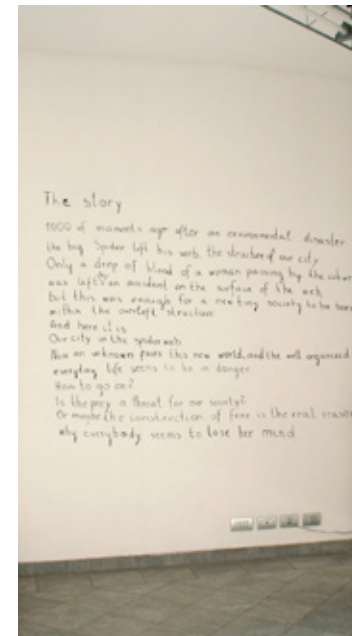 The story
1000 of moments ago after an environmental disaster
the big Spider left his web, the structure of our city
Only a drop of blood of a woman passing by the
was left by an accident on the surface of the web
but this was enough for a new tiny society to be born
within the overleft structure
And here it is
Our city in the spiderweb
Now an unknown this new world, and the well organized
everyday life seems to be in danger
How to go on?
Is the prey a threat for our society?
Or maybe the construction of fear is the real reason
why everybody seems to lose her mind